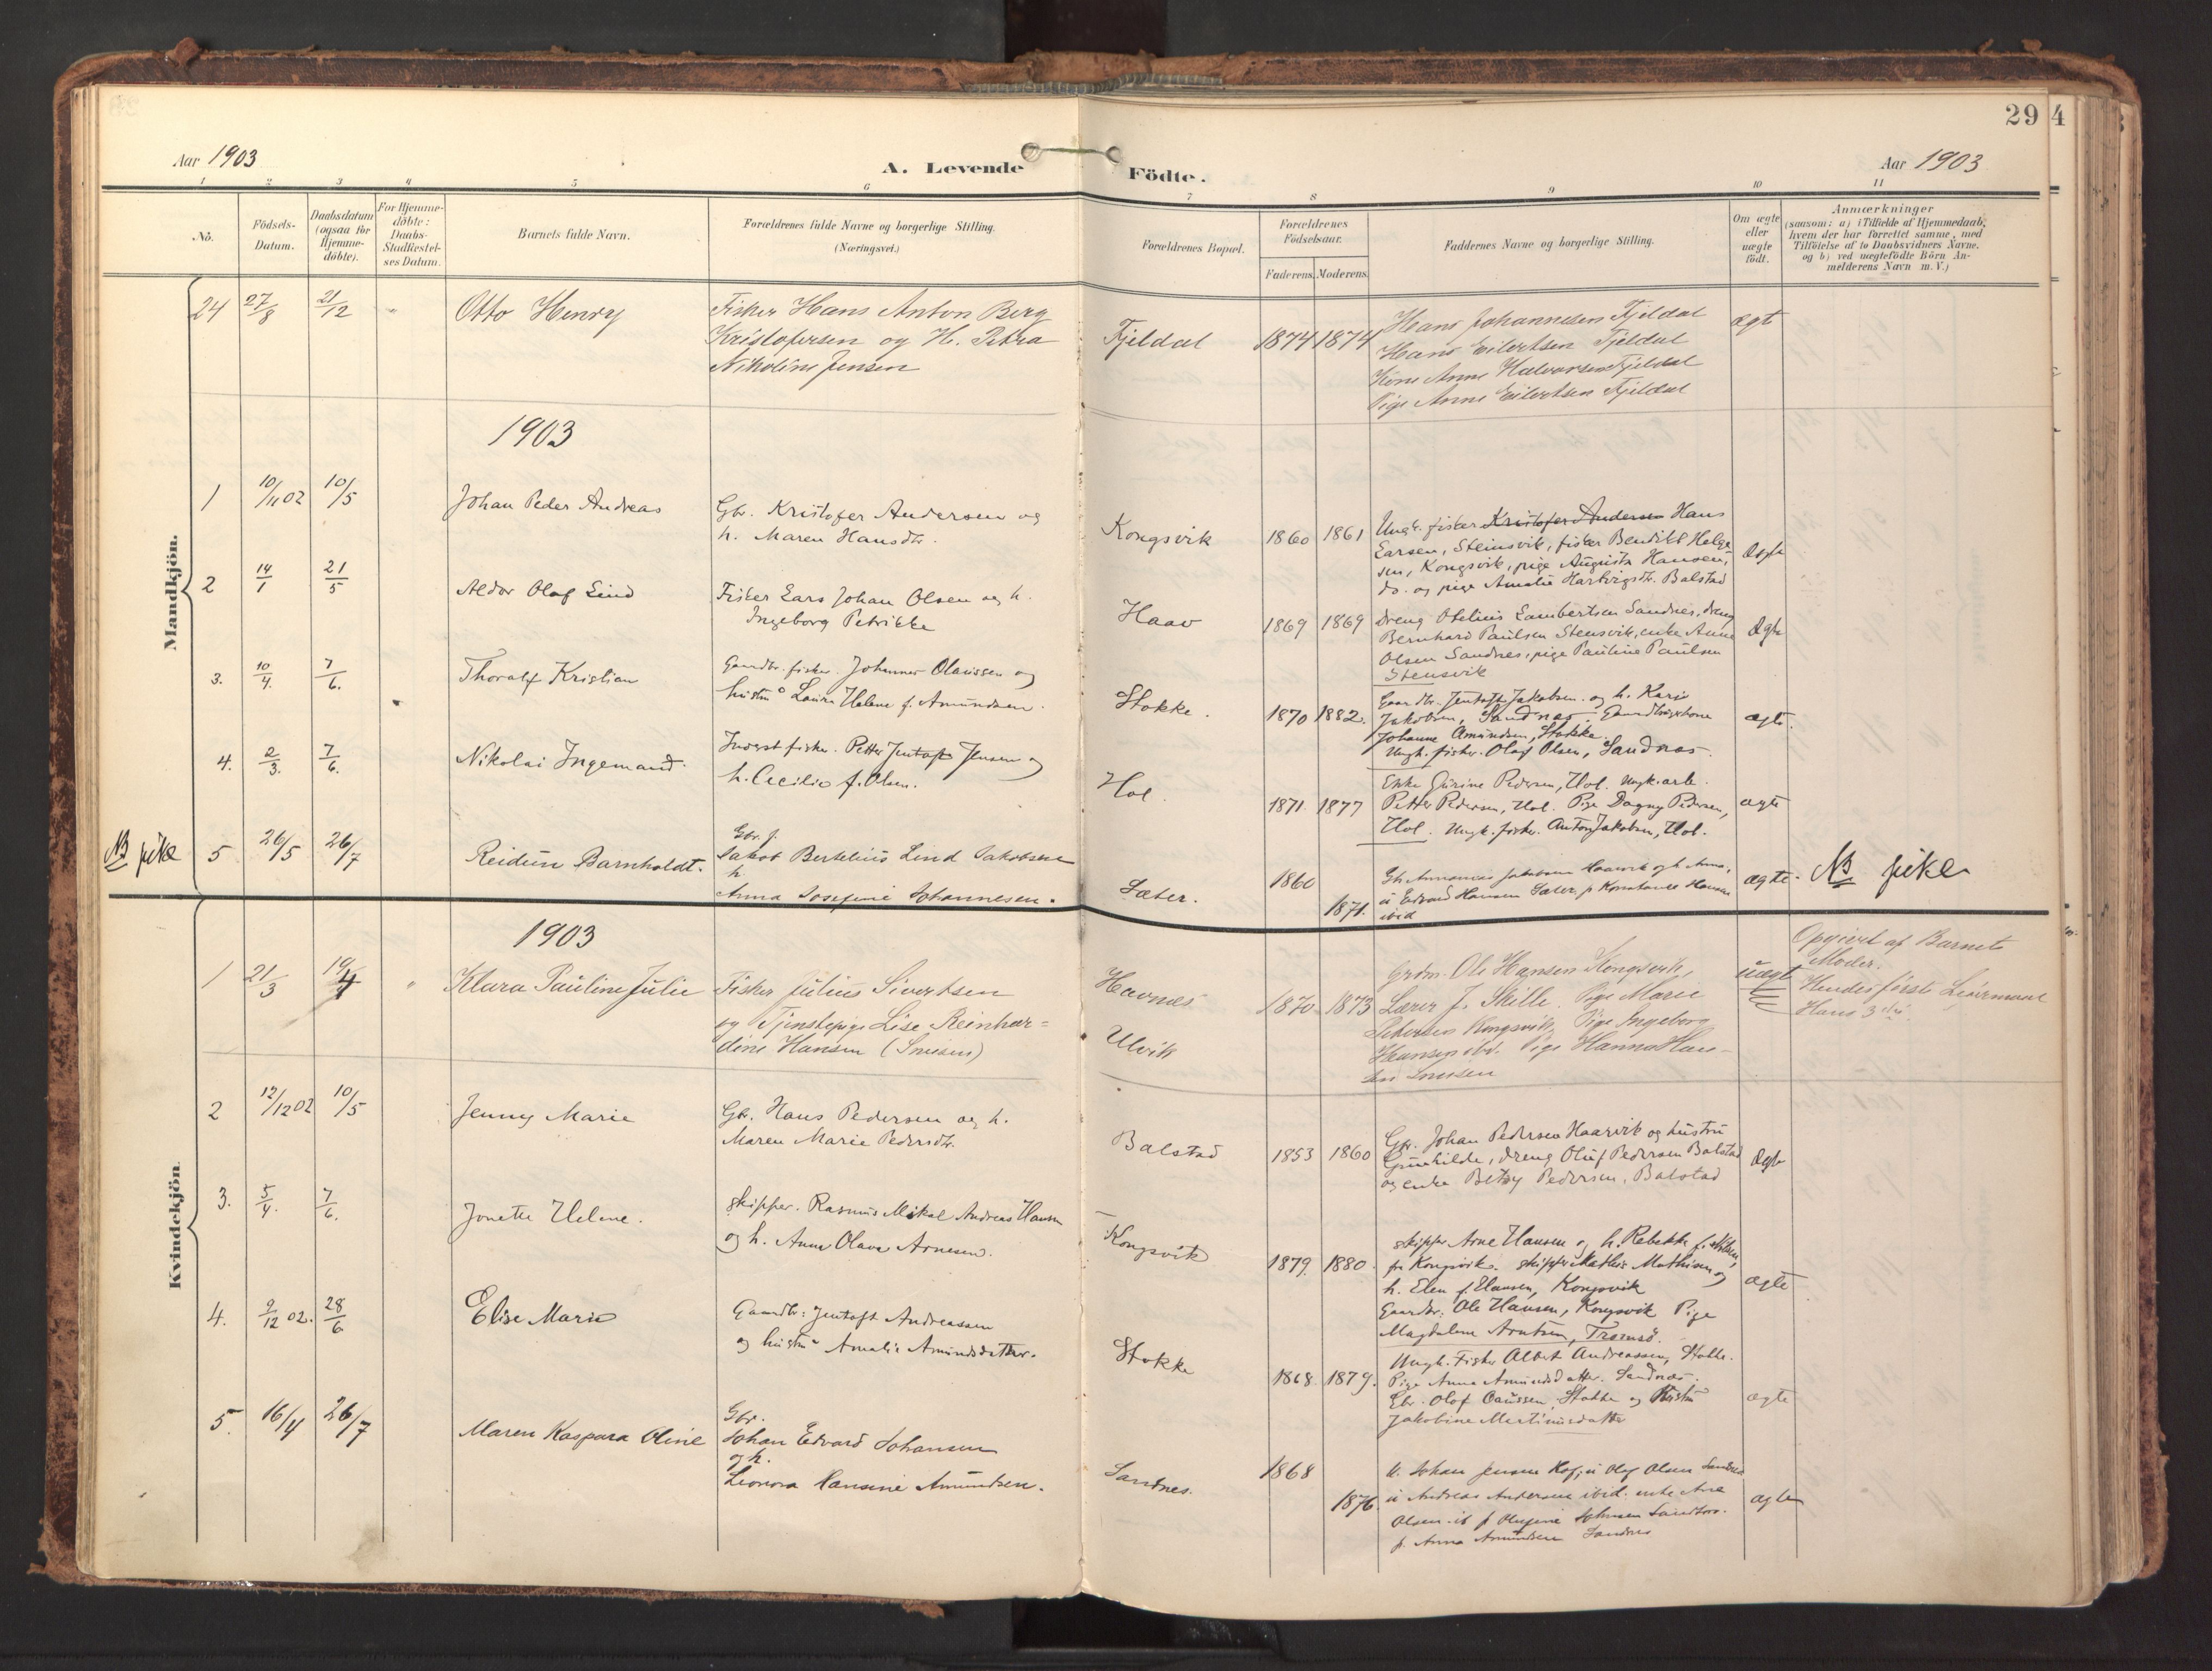 29
4
Aar 1903
A. Levende
Födte.
Aar 1903
1 2 3 4 5 6 7 8 9 10 11
Nö.
Födsels-
Datum.
Daabsdatum
(ogsaa for
Hjemme-
döbte).
For Hjemme-
döbte:
Daabs-
Stadfæstel-
ses Datum.
Barnets fulde Navn.
Forældrenes fulde Navne og borgerlige Stilling.
(Næringsvei.)
Forældrenes Bopæl.
Forældrenes
Födselsaar.
Faderens. Moderens.
Faddernes Navne og borgerlige Stilling.
Om ægte
eller
uægte
födt.
Anmærkninger
(saasom: a) i Tilfælde af Hjemmedaab,
hvem der har forrettet samme, med
Tilföielse af to Daabsvidners Navne.
og b) ved uægtefödte Börn An-
melderens Navn m. V.)
Mandkjön.
24 27/8 21/12 " Otto Henry
Fisker Hans Anton Berg
Kristofersen og H. Petra
Nikoline Jensen
Fjeldal 1874 1874
Hans Johannesen Fjeldal
Hans Eilertsen Fjeldal
Kone Anne Halvorsen Fjeldal
Pige Anne Eilertsen Fjeldal
ægt
1903
1 10/11 02 10/5 Johan Peder Andreas
Gbr. Kristofer Andersen og
h. Maren Hansdtr.
Kongsvik 1860 1861
Ungk. fisker Kristofer Andersen Hans
Larsen, Steinsvik, fisker Bendikt Helge
sen, Kongsvik, pige Augusta Hansen,
do. og pige Amalie Hartvigsdtr. Balstad
Ægte
2 14/1 21/5 Aldor Olaf Lind
Fisker Lars Johan Olsen og h.
Ingeborg Petrikke
Haav 1869 1869
Dreng Otelius Lambertsen Sandnes, dreng
Bernhard Paulsen Stensvik, enke Anne
Olsen Sandnes, pige Pauline Paulsen
Stensvik
Ægte
3. 10/4. 7/6. Thoralf Kristian
Gaardbr. fisker Johannes Olaussen og
hustru Laura Helene f. Amundsen.
Stokke. 1870 1882.
Gaardbr. Jentoft Jakobsen. og h. Karen
Jakobsen, Sandnæs. Gaardbrugerkone
Johanne Amundsen, Stokke.
Ungk. fisker. Olaf Olsen, Sandnæs.
ægte.
4. 2/3. 7/6. Nikolai Ingemand.
Inderst fisker. Petter Jentoft Jensen og
h. Cecilie f. Olsen.
Hol. 1871 1877
Enke Gurine Pedersen, Hol. Ungk. arb.
Petter Pedersen, Hol. Pige Dagny Pedersen,
Hol. Ungk. fisker. Anton Jakobsen, Hol.
ægte
NB pike 5 26/5 26/7 Reidun Barnholdt.
Gbr. f.
Jakob Bertelius Lind Jakobsen
h
Anna Josefine Johannesen.
Sæter. 1860
1871.
Gb. Jakobsen Haarvik og h. Anna,
u Edvard Hansen Sæter, p Konstance Hansen
ibid
ægte.
NB pike
Kvindekjön.
1903
1 21/3 19/4 " Klara Pauline Julie
Fisker Julius Sivertsen
og Tjenstepige Lise Reinhar=
dine Hansen (Snusen)
Havnes
Ulvik
1870 1873
Grdm. Ole Hansen Kongsvik,
Lærer J. Skille. Pige Marie
Kongsvik, Pige Ingeborg
Hansen ibd. Pige Hanna Han-
sen Snusen
uægt
Opgivet af Barnets
Moder.
Hendes förste Leiermaal
Hans 3die.
2 12/12 02 10/5 Jenny Marie
Gbr. Hans Pedersen og h.
Maren Marie Pedersdtr.
Balstad 1853 1860
Gbr. Johan Pedersen Haarvik og hustru
Gunhilde, dreng Oluf Pedersen Balstad
og enke Betzy Pedersen, Balstad
Ægte
3. 5/4. 7/6. Jonette Helene.
Skipper. Rasmus Mikal Andreas Hansen
og h. Anna Olava Arnesen.
Kongsvik 1879. 1880.
Skipper Arne Hansen og h. Rebekka f. Nilsen,
fra Kongsvik. Skipper Mathis Mathisen og
h. Elen f. Hansen, Kongsvik
Gaardbr. Ole Hansen, Kongsvik Pige
Magdalene Arntsen, Tromsö.
ægte
4. 9/12 02. 28/6 Elise Marie
Gaardbr: Jentoft Andreassen
og hustru Amalie Amundsdatter.
Stokke 1868 1879.
Ungk. Fisker Albert Andreassen, Stokke.
Pige Anna Amundsdatter. Sandnæs.
Gbr. Olof Oaussen, Stokke og Hustru
Jakobine Martinusdatter
ægte
5. 16/4 26/7 Maren Kaspara Oline
Gbr.
Johan Edvard Johansen
og h.
Leonora Hansine Amundsen.
Sandnes. 1868
1876.
u. Johan Jensen Hof, u Olaf Olsen Sandnes
u Andreas Andersen ibid. enke Ane
Olsen ib p Olufine Johnsen Sandtorv.
p. Anna Amundsen Sandnes
ægte